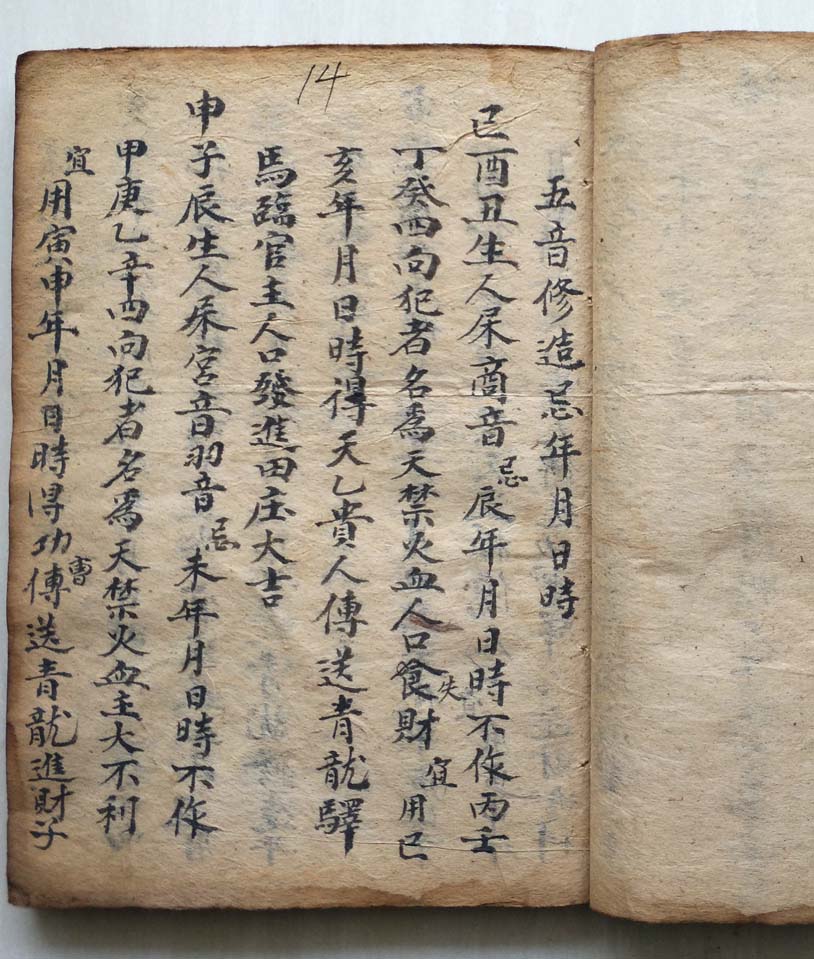 14
五音修造忌年月日時
巳酉丑生人屎商音忌辰年月日時不作丙壬
丁癸四向犯者名為天禁火血人口飧失財宜用巳
亥年月日時得天乙貴人傳送青龍驛
馬臨官主人口發進田庄大吉
申子辰生人屎宮音羽音忌未年月日時不作
甲庚乙辛四向犯者名為天禁火血主大不利
宜用寅申年月日時得功曹傳送青龍進財子